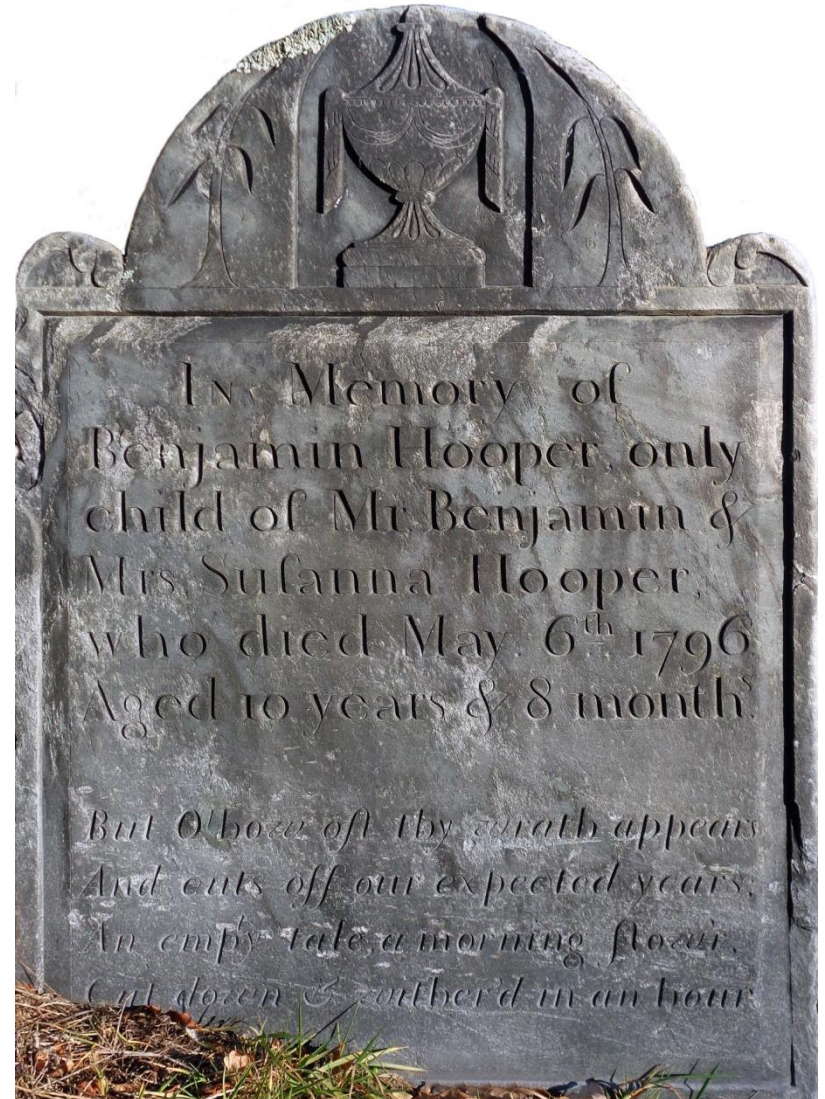 In Memory of
Benjamin Hooper, only
child of Mr. Benjamin &
Mrs. Suſanna Hooper,
who died May 6th. 1796
Aged 10 years & 8 months.
But O! how oft thy wrath appears
And cuts off our expected years,
An emp'y tale, a morning flow'r,
Cut down & wither'd in an hour